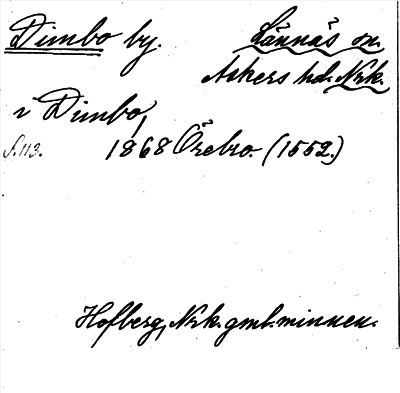 Dimbo by. Lännäs sn.
Askers hd. Nrk.
i Dimbo,
s. 113. 1868 Örebro. (1552.)
Hofberg, Nrk. gml. minnen.